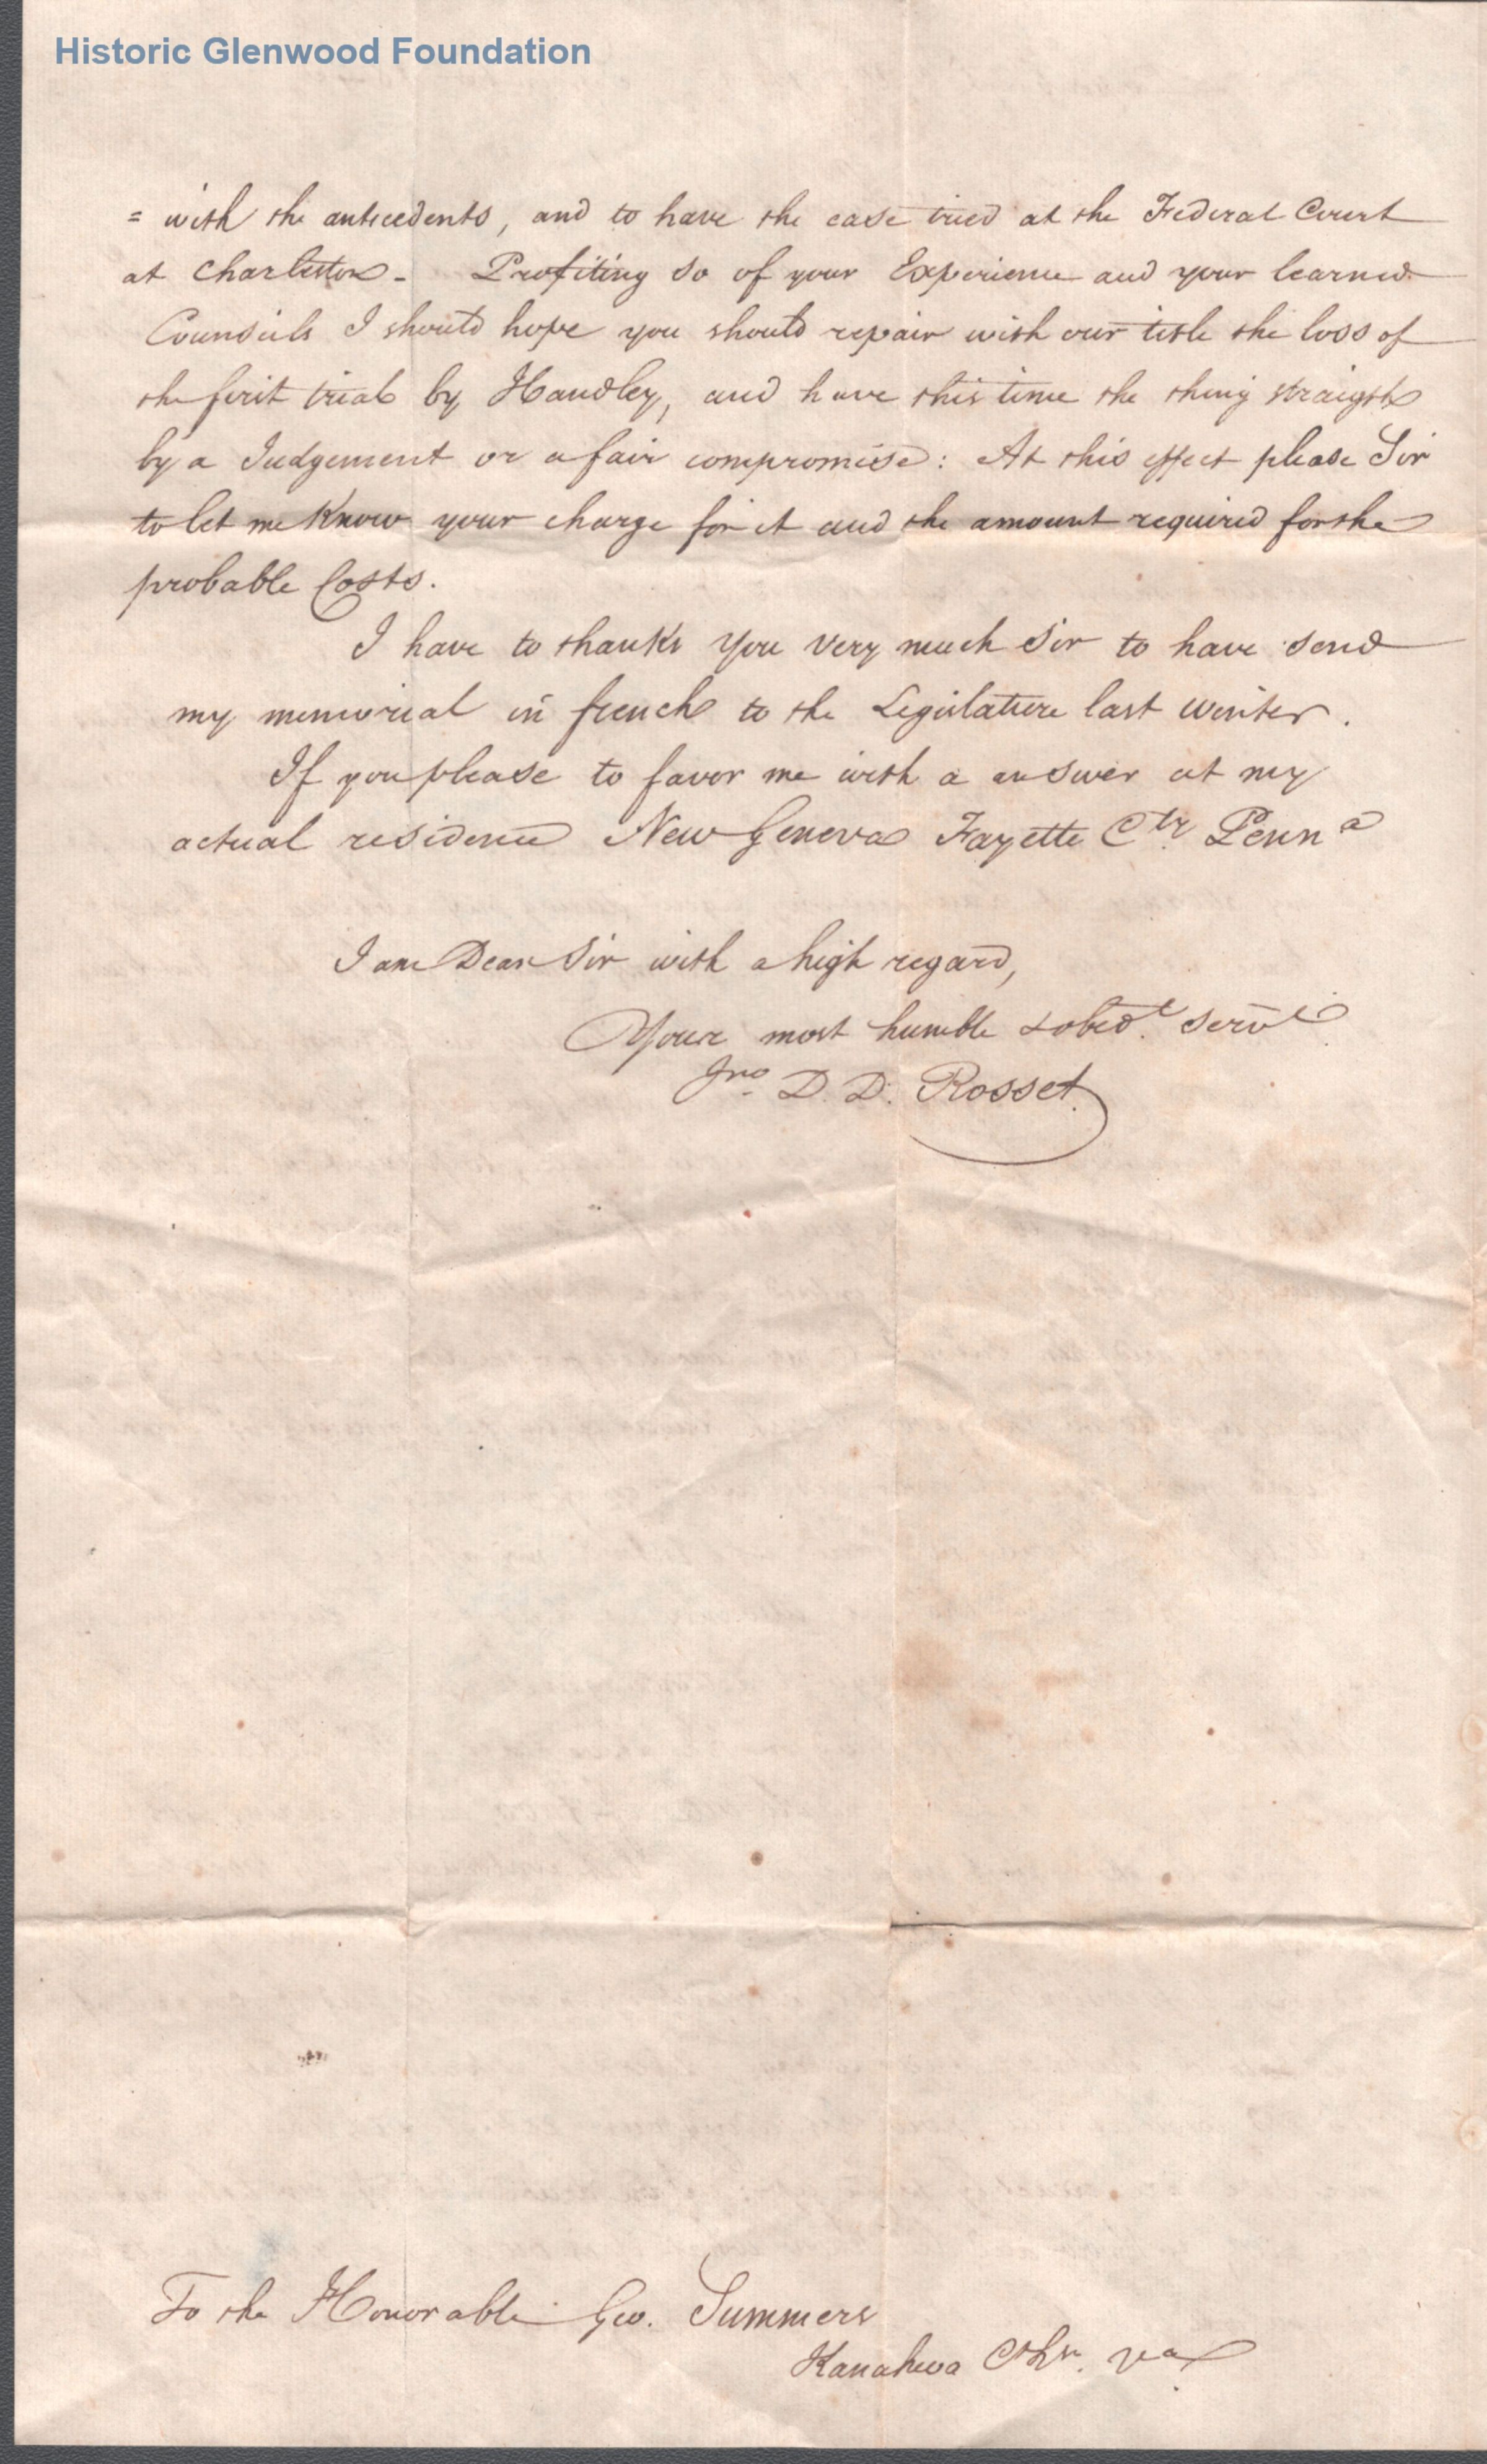 Historic Glenwood Foundation
= with the antecedents, and to have the case tried at the Federal Court
at Charleston - Profiting so of your Experience and your learned
Counsils I should hope you should repair with our title the loss of
the first trial by Handley, and have this time the thing straight
by a Judgement or a fair compromise: At this effect please Sir
to let me Know your charge for it and the amount required for the
probable Costs.
I have to thanks You very much Sir to have send
my memorial in french to the Legislature last winter.
If you please to favor me with a answer at my
actual residence New Geneva Fayette Cty Penna
I am Dear Sir with a high regard,
Your most humble & obedt servt
Jno D. D. Rosset.
To the Honorable Geo. Summers
Kanahwa va